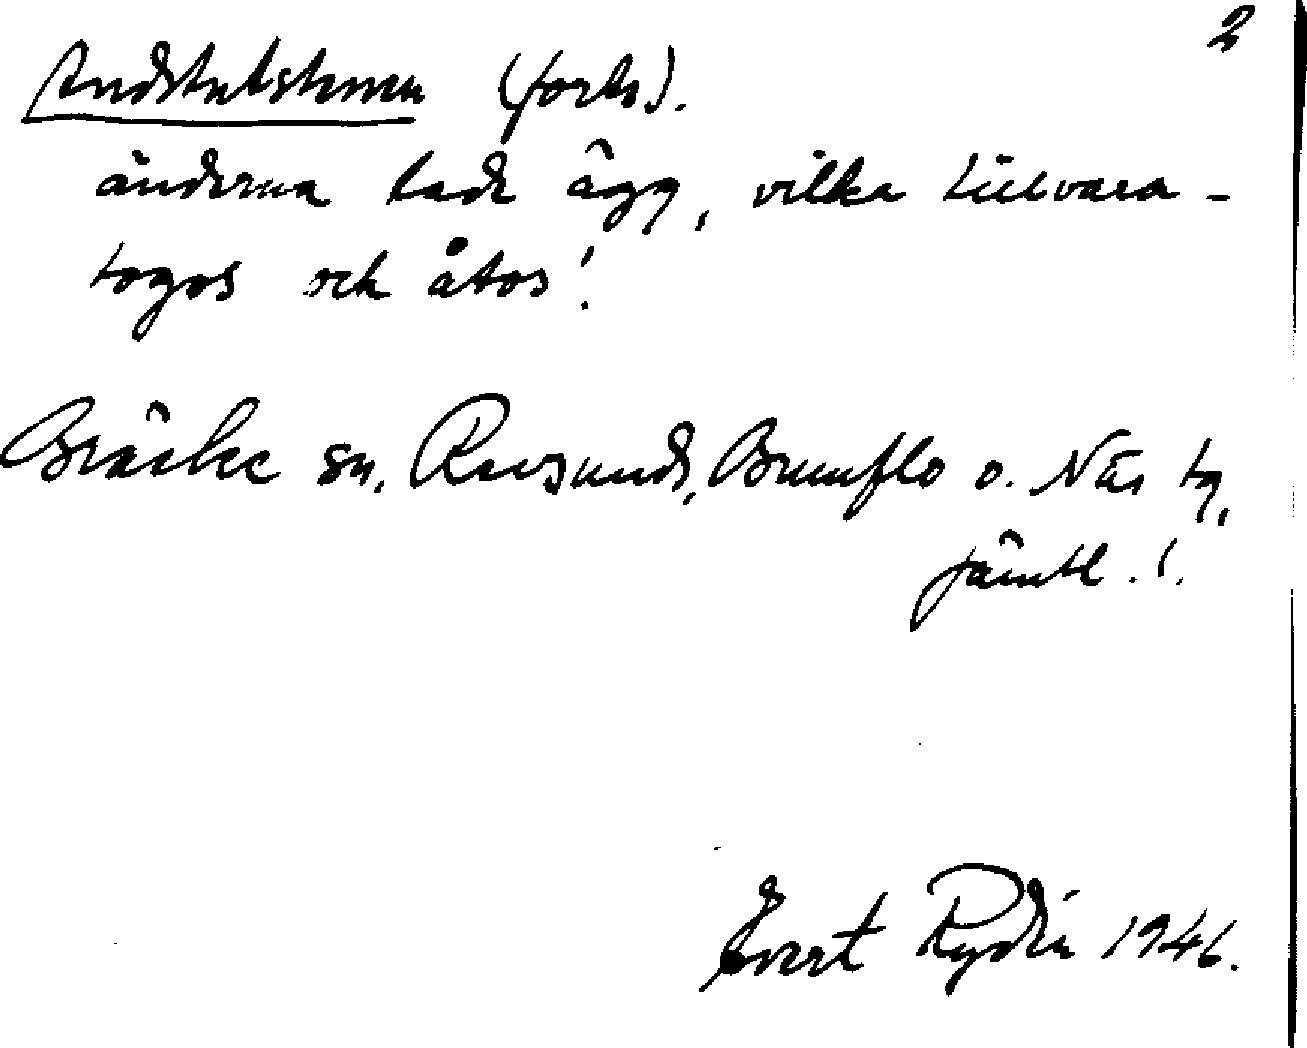 2
Andstubstenen (forts).
änderna lade ägg, vilka tillvara-
togos och åtos!
Bräcke sn, Revsunds, Brunflo o. Näs tg,
Jämtl.!.
Evert Rydin 1946.